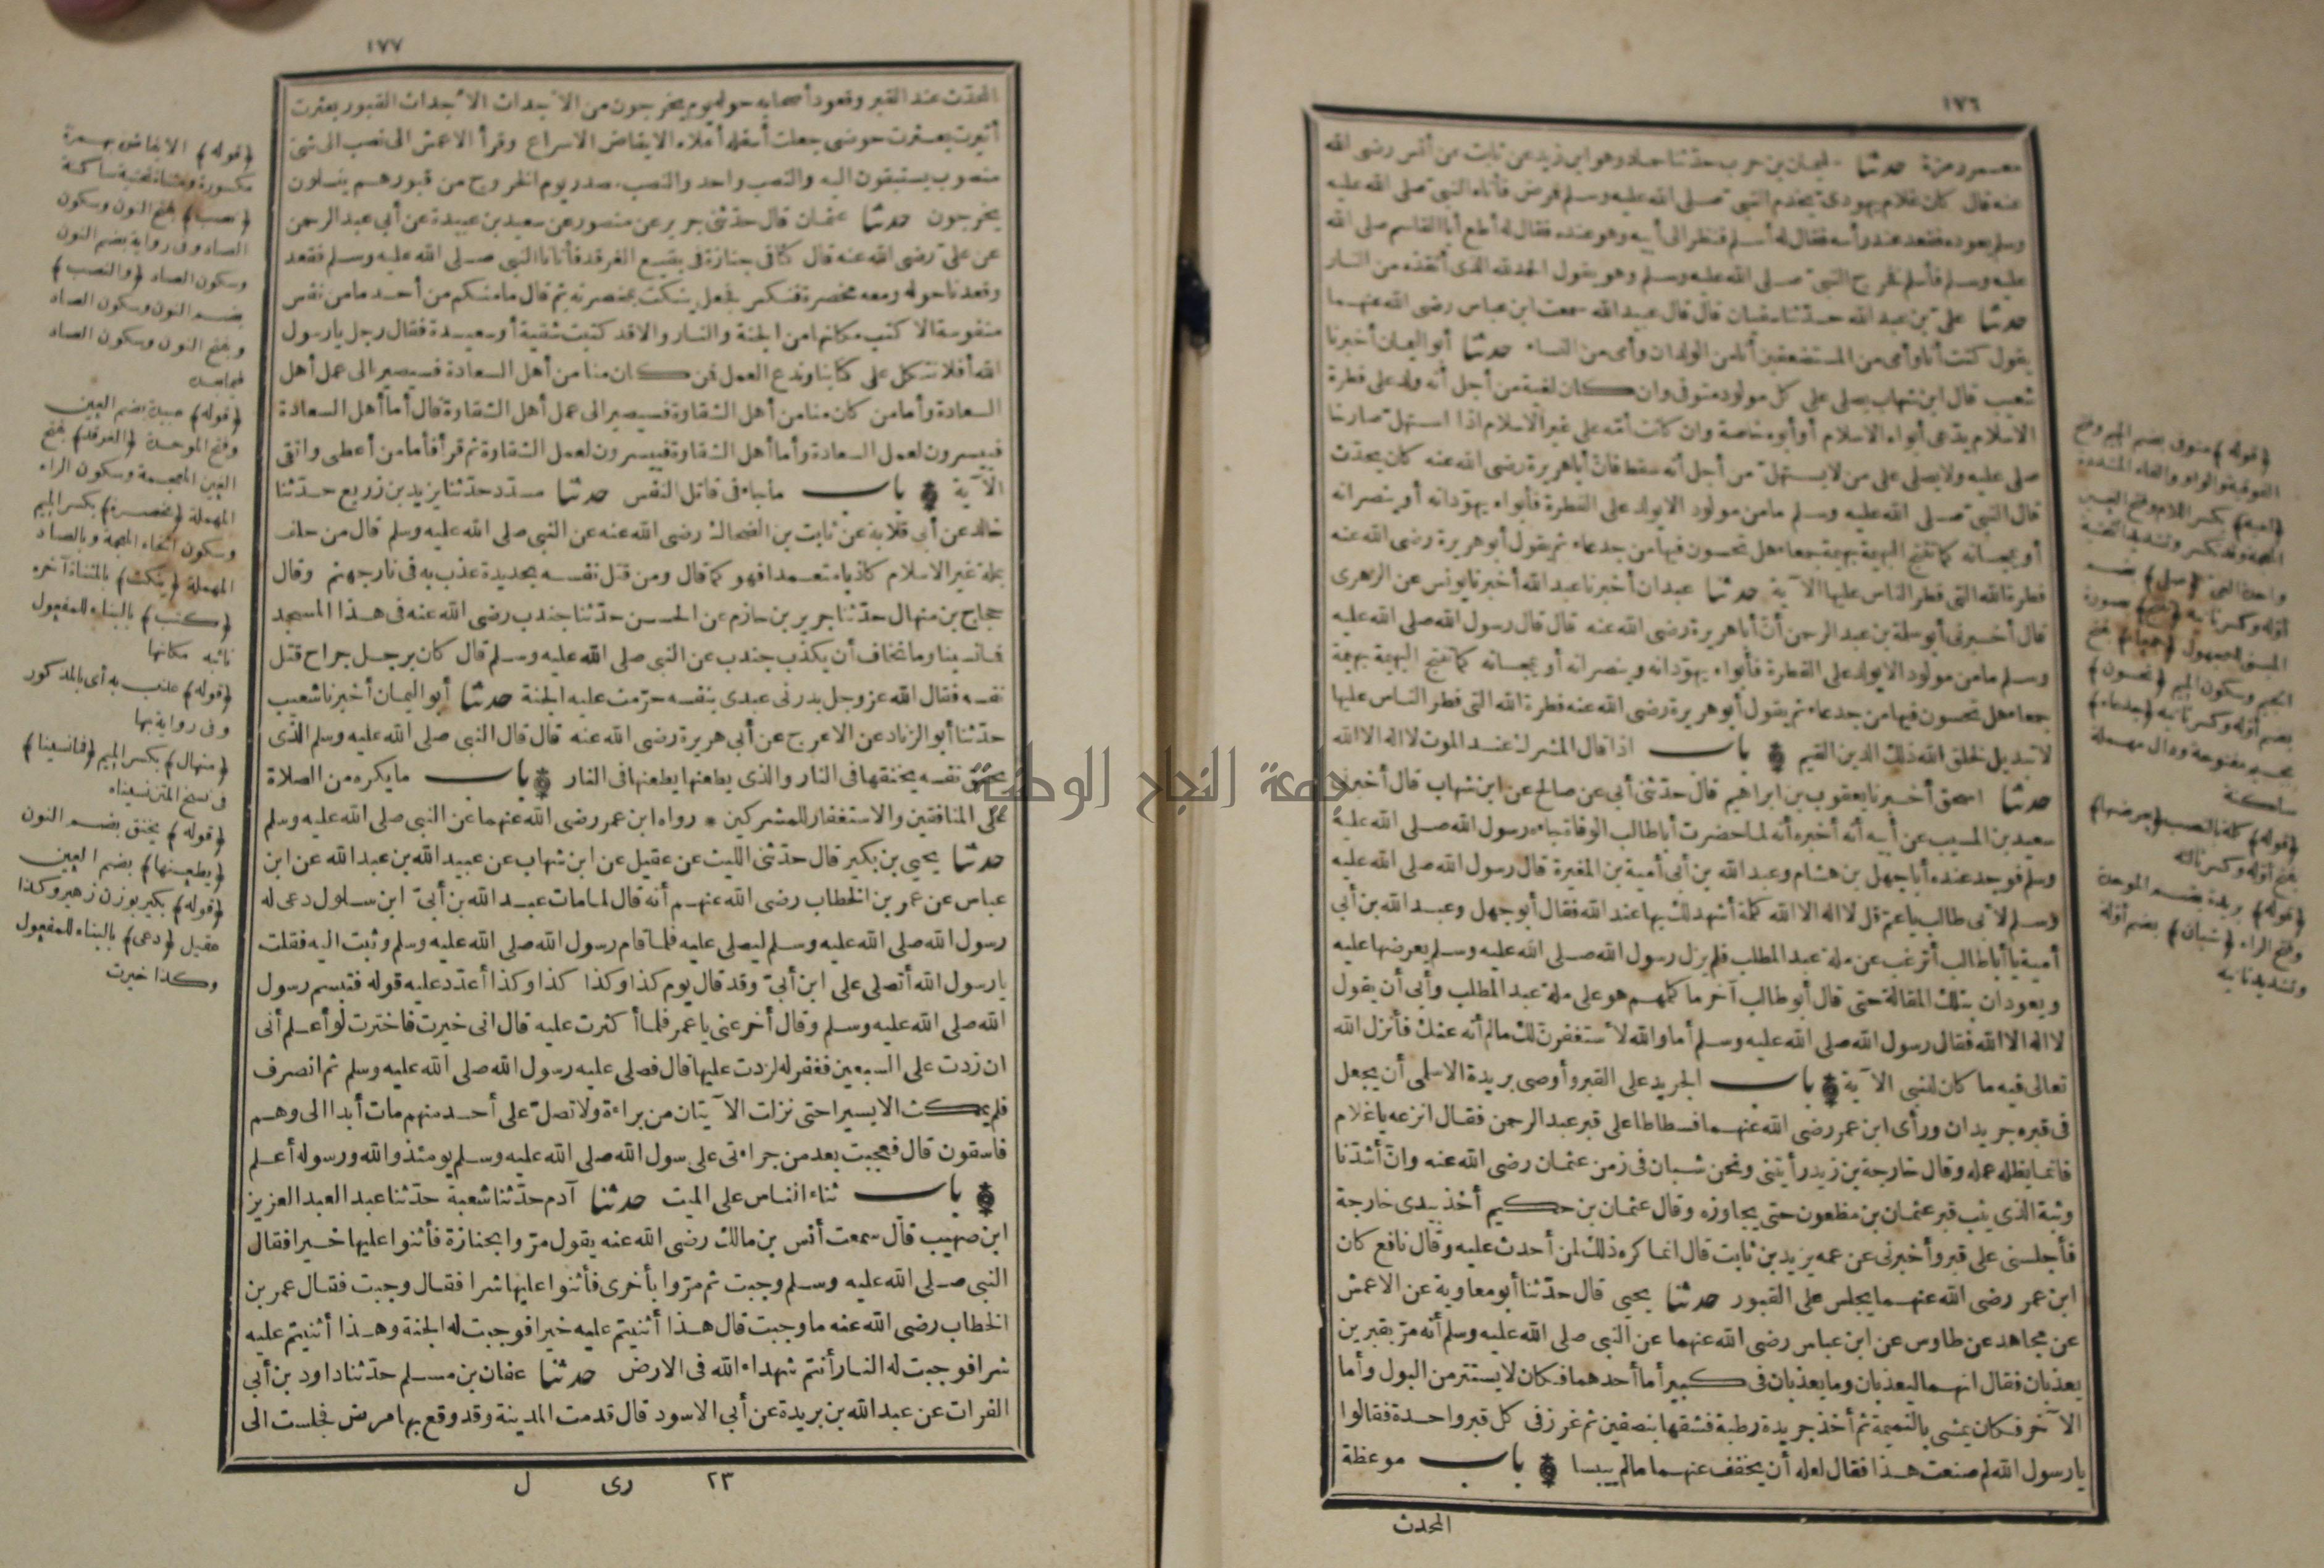 ١٧٦
معمر رمزة حدثنا سليمان بن حرب حدثنا حماد وهو ابن زيد عن ثابت عن أنس رضى الله
عنه قال كان غلام يهودى يخدم النبى صلى الله عليه وسلم فمرض فأتاه النبى صلى الله عليه
وسلم يعوده فقعد عند رأسه فقال له أسلم فنظر الى أبيه وهو عنده فقال له أطع أبا القاسم صلى الله
عليه وسلم فأسلم فخرج النبى صلى الله عليه وسلم وهو يقول الحمد لله الذى أنقذه من النار
حدثنا على بن عبد الله حدثنا سفيان قال قال عبيد الله سمعت ابن عباس رضى الله عنهما
يقول كنت أنا وأمى من المستضعفين أنا من الولدان وأمى من النساء حدثنا أبو اليمان أخبرنا
شعيب قال ابن شهاب يصلى على كل مولود متوفى وان كان لغية من أجل أنه ولد على فطرة
الاسلام يدّعى أبواه الاسلام أو أبوه خاصة وان كانت أمّه على غير الاسلام اذا استهل صارخا
صلى عليه ولا يصلى على من لا يستهلّ من أجل أنه سقط فانّ أبا هريرة رضى الله عنه كان يحدّث
قال النبى صلى الله عليه وسلم ما من مولود الا يولد على الفطرة فأبواه يهوّدانه أو ينصرانه
أو يمجسانه كما تنتج البهيمة بهيمة جمعاء هل تحسون فيها من جدعاء ثم يقول أبو هريرة رضى الله عنه
فطرة الله التى فطر الناس عليها الآية حدثنا عبدان أخبرنا عبد الله أخبرنا يونس عن الزهرى
قال أخبرنى أبو سلمة بن عبد الرحمن أنّ أبا هريرة رضى الله عنه قال قال رسول الله صلى الله عليه
وسلم ما من مولود الا يولد على الفطرة فأبواه يهوّدانه وينصرانه أو يمجسانه كما تنتج البهيمة بهيمة
جمعاء هل تحسون فيها من جدعاء ثم يقول أبو هريرة رضى الله عنه فطرة الله التى فطر الناس عليها
لا تبديل لخلق الله ذلك الدين القيم باب اذا قال المشرك عند الموت لا اله الا الله
حدثنا اسحق أخبرنا يعقوب بن ابراهيم قال حدّثنى أبى عن صالح عن ابن شهاب قال أخبرنى
سعيد بن المسيب عن أبيه أنه أخبره أنه لما حضرت أبا طالب الوفاة جاءه رسول الله صلى الله عليه
وسلم فوجد عنده أبا جهل بن هشام وعبد الله بن أبى أمية بن المغيرة قال رسول الله صلى الله عليه
وسلم لابى طالب يا عمّ قل لا اله الا الله كلمة أشهد لك بها عند الله فقال أبو جهل وعبد الله بن أبى
أمية يا أبا طالب أترغب عن ملة عبد المطلب فلم يزل رسول الله صلى الله عليه وسلم يعرضها عليه
ويعودان بتلك المقالة حتى قال أبو طالب آخر ما كلمهم هو على ملة عبد المطلب وأبى أن يقول
لا اله الا الله فقال رسول الله صلى الله عليه وسلم أما والله لأستغفرنّ لك ما لم أنه عنك فأنزل الله
تعالى فيه ما كان للنبى الآية باب الجريد على القبر وأوصى بريدة الاسلمى أن يجعل
فى قبره جريدان ورأى ابن عمر رضى الله عنهما فسطاطا على قبر عبد الرحمن فقال انزعه يا غلام
فانما يظله عمله وقال خارجة بن زيد رأيتنى ونحن شبان فى زمن عثمان رضى الله عنه وانّ أشدّنا
وثبة الذى يثب قبر عثمان بن مظعون حتى يجاوزه وقال عثمان بن حكيم أخذ بيدى خارجة
فأجلسنى على قبر وأخبرنى عن عمه يزيد بن ثابت قال انما كره ذلك لمن أحدث عليه وقال نافع كان
ابن عمر رضى الله عنهما يجلس على القبور حدثنا يحيى قال حدّثنا أبو معاوية عن الاعمش
عن مجاهد عن طاوس عن ابن عباس رضى الله عنهما عن النبى صلى الله عليه وسلم أنه مرّ بقبرين
يعذبان فقال انهما ليعذبان وما يعذبان فى كبير أما أحدهما فكان لا يستتر من البول وأما
الآخر فكان يمشى بالنميمة ثم أخذ جريدة رطبة فشقها بنصفين ثم غرز فى كل قبر واحدة فقالوا
يا رسول الله لم صنعت هذا فقال لعله أن يخفف عنهما ما لم ييبسا باب موعظة
المحدث
(قوله) متوفى بضم الميم وفتح
الفوقية والواو والفاء المشددة
(لغية) بكسر اللام وفتح الغين
المعجمة وقد تكسر وتشديد التحتية
أوّله وكسر ثانيه (تنتج) بصورة
المبنى للمجهول (جمعاء) بفتح
الجيم وسكون الميم (تحسون)
بضم أوّله وكسر ثانيه (جدعاء)
بجيم مفتوحة ودال مهملة
ساكنة
(قوله) كلمة بالنصب (يعرضها)
بفتح أوّله وكسر ثالثه
(قوله) بريدة بضم الموحدة
وفتح الراء (شبان) بضم أوّله
وتشديد ثانيه
١٧٧
المحدّث عند القبر وقعود أصحابه حوله يوم يخرجون من الاجداث الاجداث القبور بعثرت
أثيرت بعثرت حوضى جعلت أسفله أعلاه الايفاض الاسراع وقرأ الاعمش الى نصب الى شئ
منصوب يستبقون اليه والنصب واحد والنصب مصدر يوم الخروج من قبورهم ينسلون
يخرجون حدثنا عثمان قال حدّثنى جرير عن منصور عن سعيد بن عبيدة عن أبى عبد الرحمن
عن علىّ رضى الله عنه قال كنا فى جنازة فى بقيع الغرقد فأتانا النبى صلى الله عليه وسلم فقعد
وقعدنا حوله ومعه مخصرة فنكس فجعل ينكت بمخصرته ثم قال ما منكم من أحد ما من نفس
منفوسة الا كتب مكانها من الجنة والنار والا قد كتبت شقية أو سعيدة فقال رجل يا رسول
الله أفلا نتكل على كتابنا وندع العمل فمن كان منا من أهل السعادة فسيصير الى عمل أهل
السعادة وأما من كان منا من أهل الشقاوة فسيصير الى عمل أهل الشقاوة قال أما أهل السعادة
فييسرون لعمل السعادة وأما أهل الشقاوة فييسرون لعمل الشقاوة ثم قرأ فأما من أعطى واتقى
الآية باب ما جاء فى قاتل النفس حدثنا مسدّد حدّثنا يزيد بن زريع حدّثنا
خالد عن أبى قلابة عن ثابت بن الضحاك رضى الله عنه عن النبى صلى الله عليه وسلم قال من حلف
بملة غير الاسلام كاذبا متعمدا فهو كما قال ومن قتل نفسه بحديدة عذب به فى نار جهنم وقال
حجاج بن منهال حدّثنا جرير بن حازم عن الحسن حدّثنا جندب رضى الله عنه فى هذا المسجد
فما نسينا وما نخاف أن يكذب جندب عن النبى صلى الله عليه وسلم قال كان برجل جراح قتل
نفسه فقال الله عز وجل بدرنى عبدى بنفسه حرّمت عليه الجنة حدثنا أبو اليمان أخبرنا شعيب
حدّثنا أبو الزناد عن الاعرج عن أبى هريرة رضى الله عنه قال قال النبى صلى الله عليه وسلم الذى
يخنق نفسه يخنقها فى النار والذى يطعنها يطعنها فى النار باب ما يكره من الصلاة
على المنافقين والاستغفار للمشركين * رواه ابن عمر رضى الله عنهما عن النبى صلى الله عليه وسلم
حدثنا يحيى بن بكير قال حدّثنى الليث عن عقيل عن ابن شهاب عن عبيد الله بن عبد الله عن ابن
عباس عن عمر بن الخطاب رضى الله عنهم أنه قال لما مات عبد الله بن أبىّ ابن سلول دعى له
رسول الله صلى الله عليه وسلم ليصلى عليه فلما قام رسول الله صلى الله عليه وسلم وثبت اليه فقلت
يا رسول الله أتصلى على ابن أبىّ وقد قال يوم كذا وكذا كذا وكذا أعدّد عليه قوله فتبسم رسول
الله صلى الله عليه وسلم وقال أخر عنى يا عمر فلما أكثرت عليه قال انى خيرت فاخترت لو أعلم أنى
ان زدت على السبعين فغفر له لزدت عليها قال فصلى عليه رسول الله صلى الله عليه وسلم ثم انصرف
فلم يمكث الا يسيرا حتى نزلت الآيتان من براءة ولا تصلّ على أحد منهم مات أبدا الى وهم
فاسقون قال فعجبت بعد من جراءتى على رسول الله صلى الله عليه وسلم يومئذ والله ورسوله أعلم
باب ثناء الناس على الميت حدثنا آدم حدّثنا شعبة حدّثنا عبد العبد العزيز
ابن صهيب قال سمعت أنس بن مالك رضى الله عنه يقول مرّوا بجنازة فأثنوا عليها خيرا فقال
النبى صلى الله عليه وسلم وجبت ثم مرّوا بأخرى فأثنوا عليها شرا فقال وجبت فقال عمر بن
الخطاب رضى الله عنه ما وجبت قال هذا أثنيتم عليه خيرا فوجبت له الجنة وهذا أثنيتم عليه
شرا فوجبت له النار أنتم شهداء الله فى الارض حدثنا عفان بن مسلم حدّثنا داود بن أبى
الفرات عن عبد الله بن بريدة عن أبى الاسود قال قدمت المدينة وقد وقع بها مرض فجلست الى
٢٣ رى ل
(قوله) الايفاض بهمزة
مكسورة ومثناة تحتية ساكنة
(نصب) بفتح النون وسكون
الصاد وفى رواية بضم النون
وسكون الصاد (والنصب)
بضم النون وسكون الصاد
وبفتح النون وسكون الصاد
فيما بعده
(قوله) عبيدة بضم العين
وفتح الموحدة (الغرقد) بفتح
الغين المعجمة وسكون الراء
المهملة (مخصرة) بكسر الميم
وسكون الخاء المعجمة وبالصاد
المهملة (ينكت) بالمثناة آخره
(كتب) بالبناء للمفعول
نائبه مكانها
(قوله) عذب به أى بالمذكور
وفى رواية بها
(منهال) بكسر الميم (فمانسينا)
فى نسخ المتن نسيناه
(قوله) يخنق بضم النون
(يطعنها) بضم العين
(قوله) بكير بوزن زهير وكذا
عقيل (دعى) بالبناء للمفعول
وكذا خيرت
جامعة النجاح الوطنية